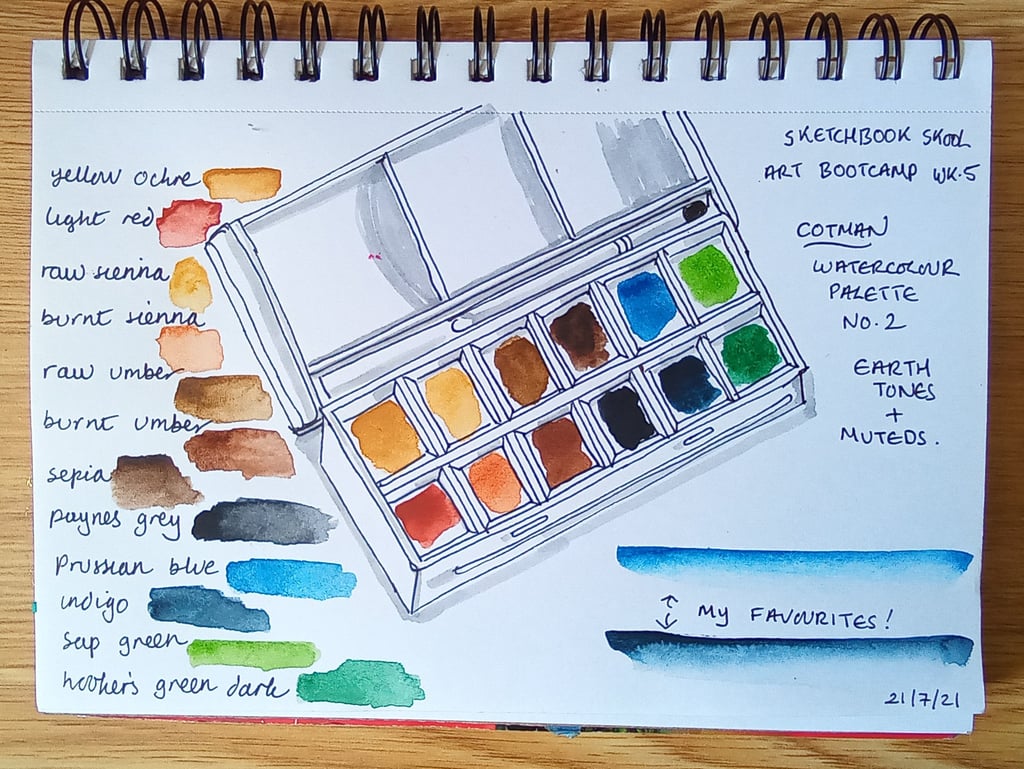 yellow ochre
light red
raw sienna
burnt sienna
raw umber
burnt umber
sepia
paynes grey
Prussian blue
indigo
sap green
hooker's green dark
SKETCHBOOK SKOOL
ART BOOTCAMP WK.5
COTMAN
WATERCOLOUR
PALETTE
NO.2
EARTH
TONES
+
MUTEDS.
MY FAVOURITES!
21/7/21